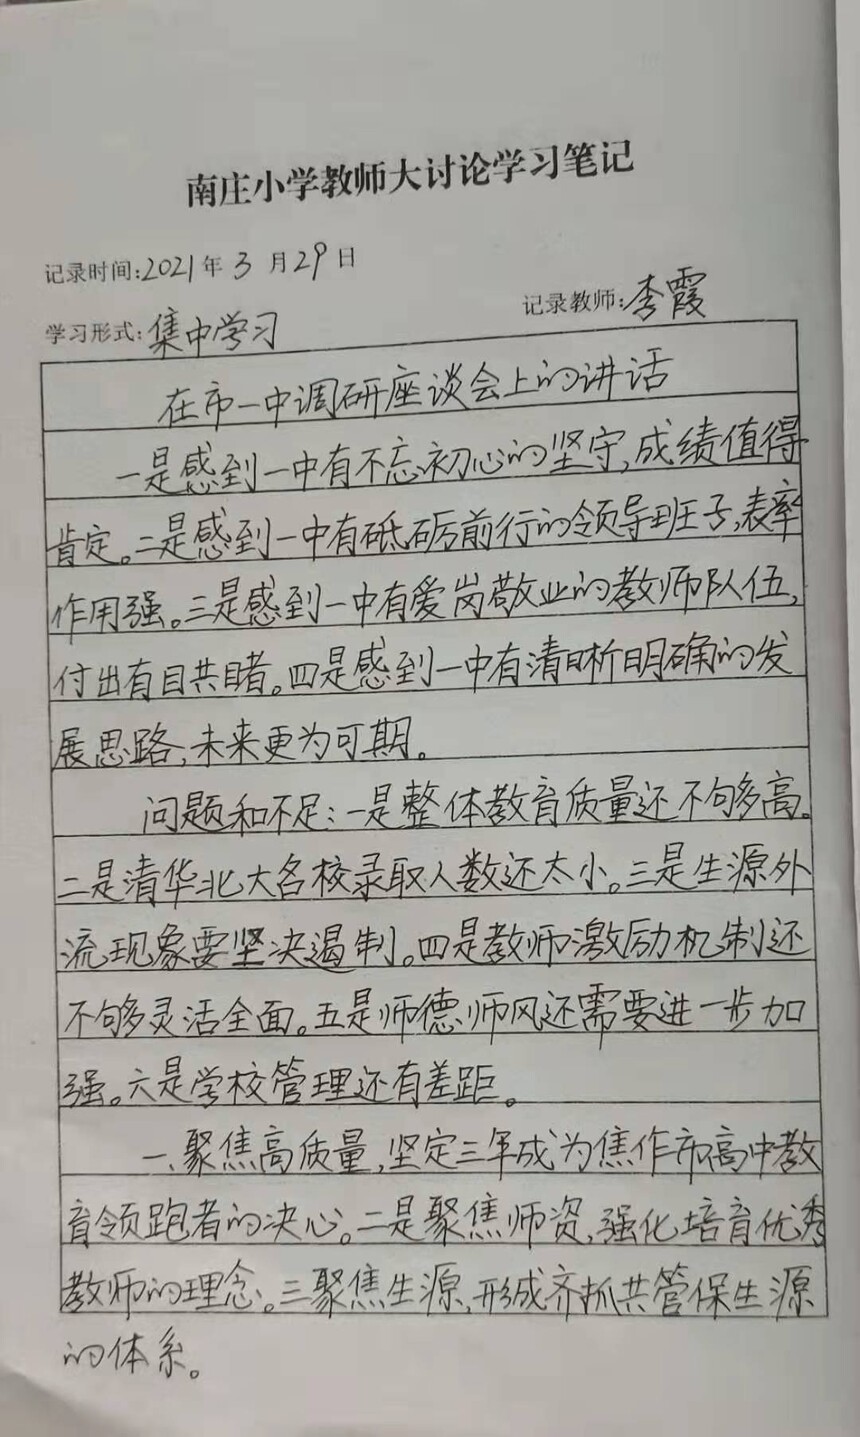 南庄小学教师大讨论学习笔记
记录时间:2021年3月29日
记录教师:李霞
学习形式:集中学习
在市一中调研座谈会上的讲话
一是感到一中有不忘初心的坚守,成绩值得
肯定。二是感到一中有砥砺前行的领导班子,表率
作用强。三是感到一中有爱岗敬业的教师队伍,
付出有目共睹。四是感到一中有清晰明确的发
展思路,未来更为可期。
问题和不足:一是整体教育质量还不够高。
二是清华北大名校录取人数还太小。三是生源外
流现象要坚决遏制。四是教师激励机制还
不够灵活全面。五是师德师风还需要进一步加
强。六是学校管理还有差距。
一、聚焦高质量,坚定三年成为焦作市高中教
育领跑者的决心。二是聚焦师资,强化培育优秀
教师的理念。三聚焦生源,形成齐抓共管保生源
的体系。